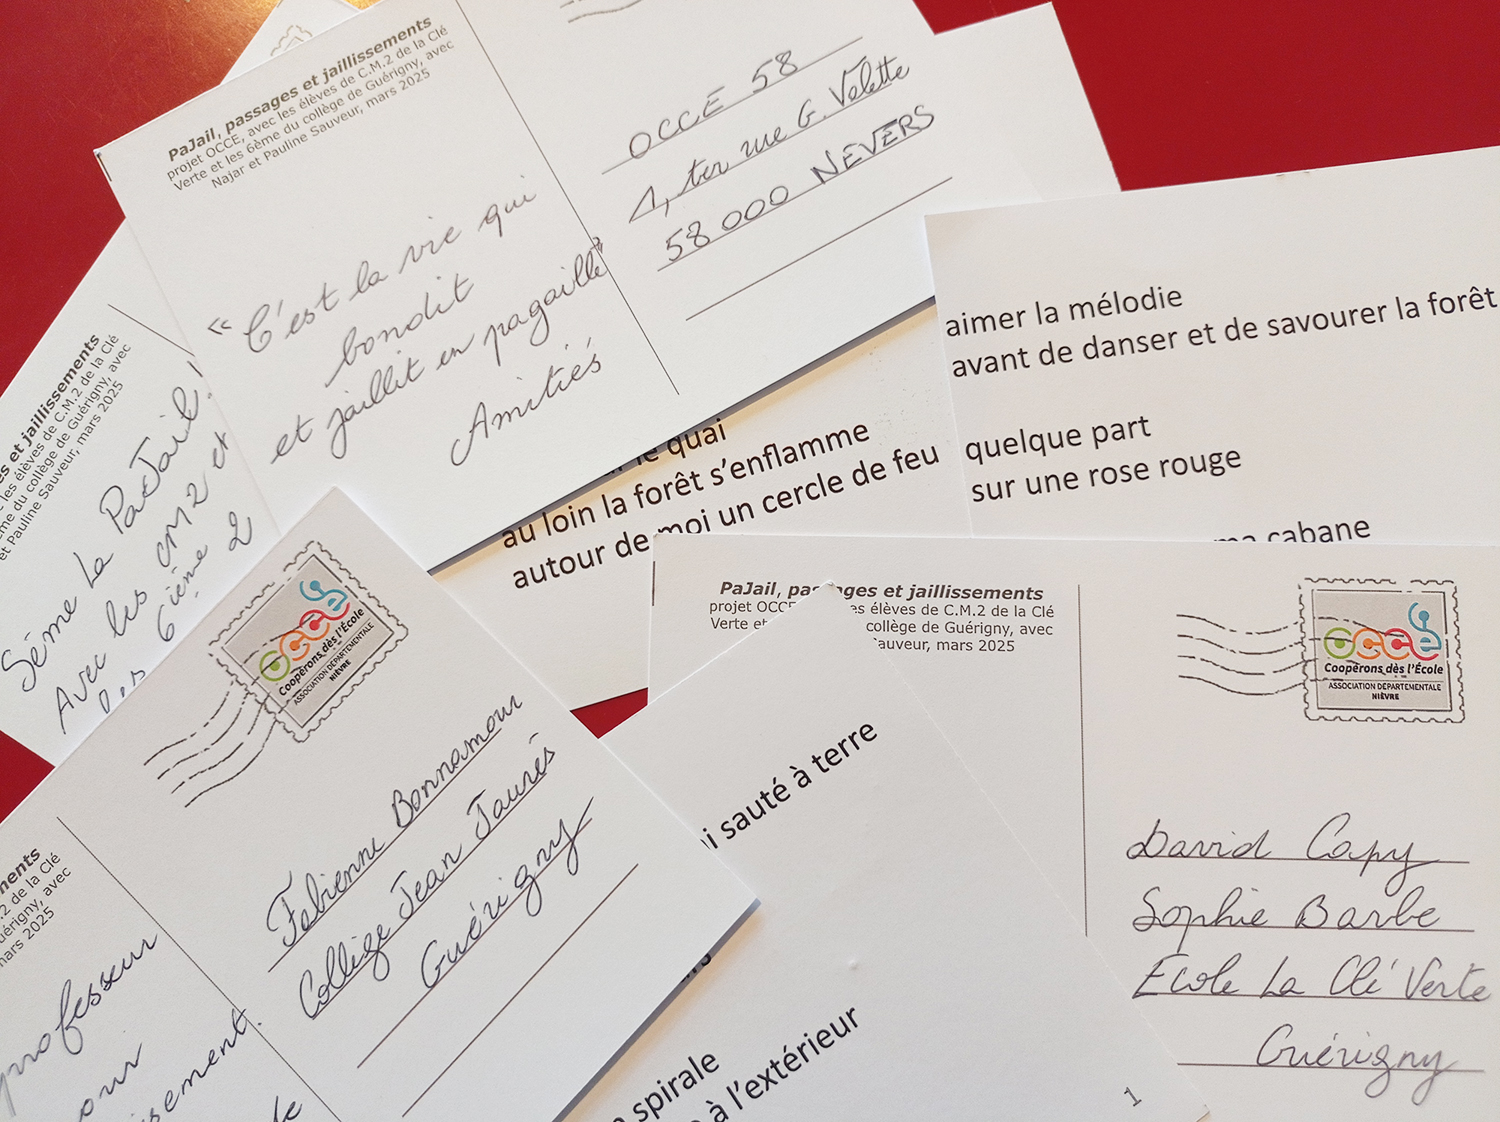 PaJail, passages et jaillissements
projet OCCE, avec les élèves de C.M.2 de la Clé
Verte et les 6ème du collège de Guérigny, avec
Najar et Pauline Sauveur, mars 2025
« C'est la vie qui
bondit
et jaillit en pagaille »
Amitiés
OCCE 58
1, ter rue G. Valette
58 000 NEVERS
es et jaillissements
les élèves de C.M.2 de la Clé
ème du collège de Guérigny, avec
et Pauline Sauveur, mars 2025
Sème La PaJail !
Avec les CM2 et
les 6ième 2
aimer la mélodie
avant de danser et de savourer la forêt
quelque part
sur une rose rouge
ma cabane
le quai
au loin la forêt s'enflamme
autour de moi un cercle de feu
occe
Coopérons dès l'École
ASSOCIATION DÉPARTEMENTALE
NIÈVRE
Fabienne Bonnamour
Collège Jean Jaurès
Guérigny
ments
.2 de la Clé
uérigny, avec
mars 2025
professeur
our
issement.
de
PaJail, passages et jaillissements
projet OCCE es élèves de C.M.2 de la Clé
Verte et collège de Guérigny, avec
Sauveur, mars 2025
occe
Coopérons dès l'École
ASSOCIATION DÉPARTEMENTALE
NIÈVRE
David Capy
Sophie Barbe
Ecole La Clé Verte
Guérigny
i sauté à terre
spirale
à l'extérieur
1